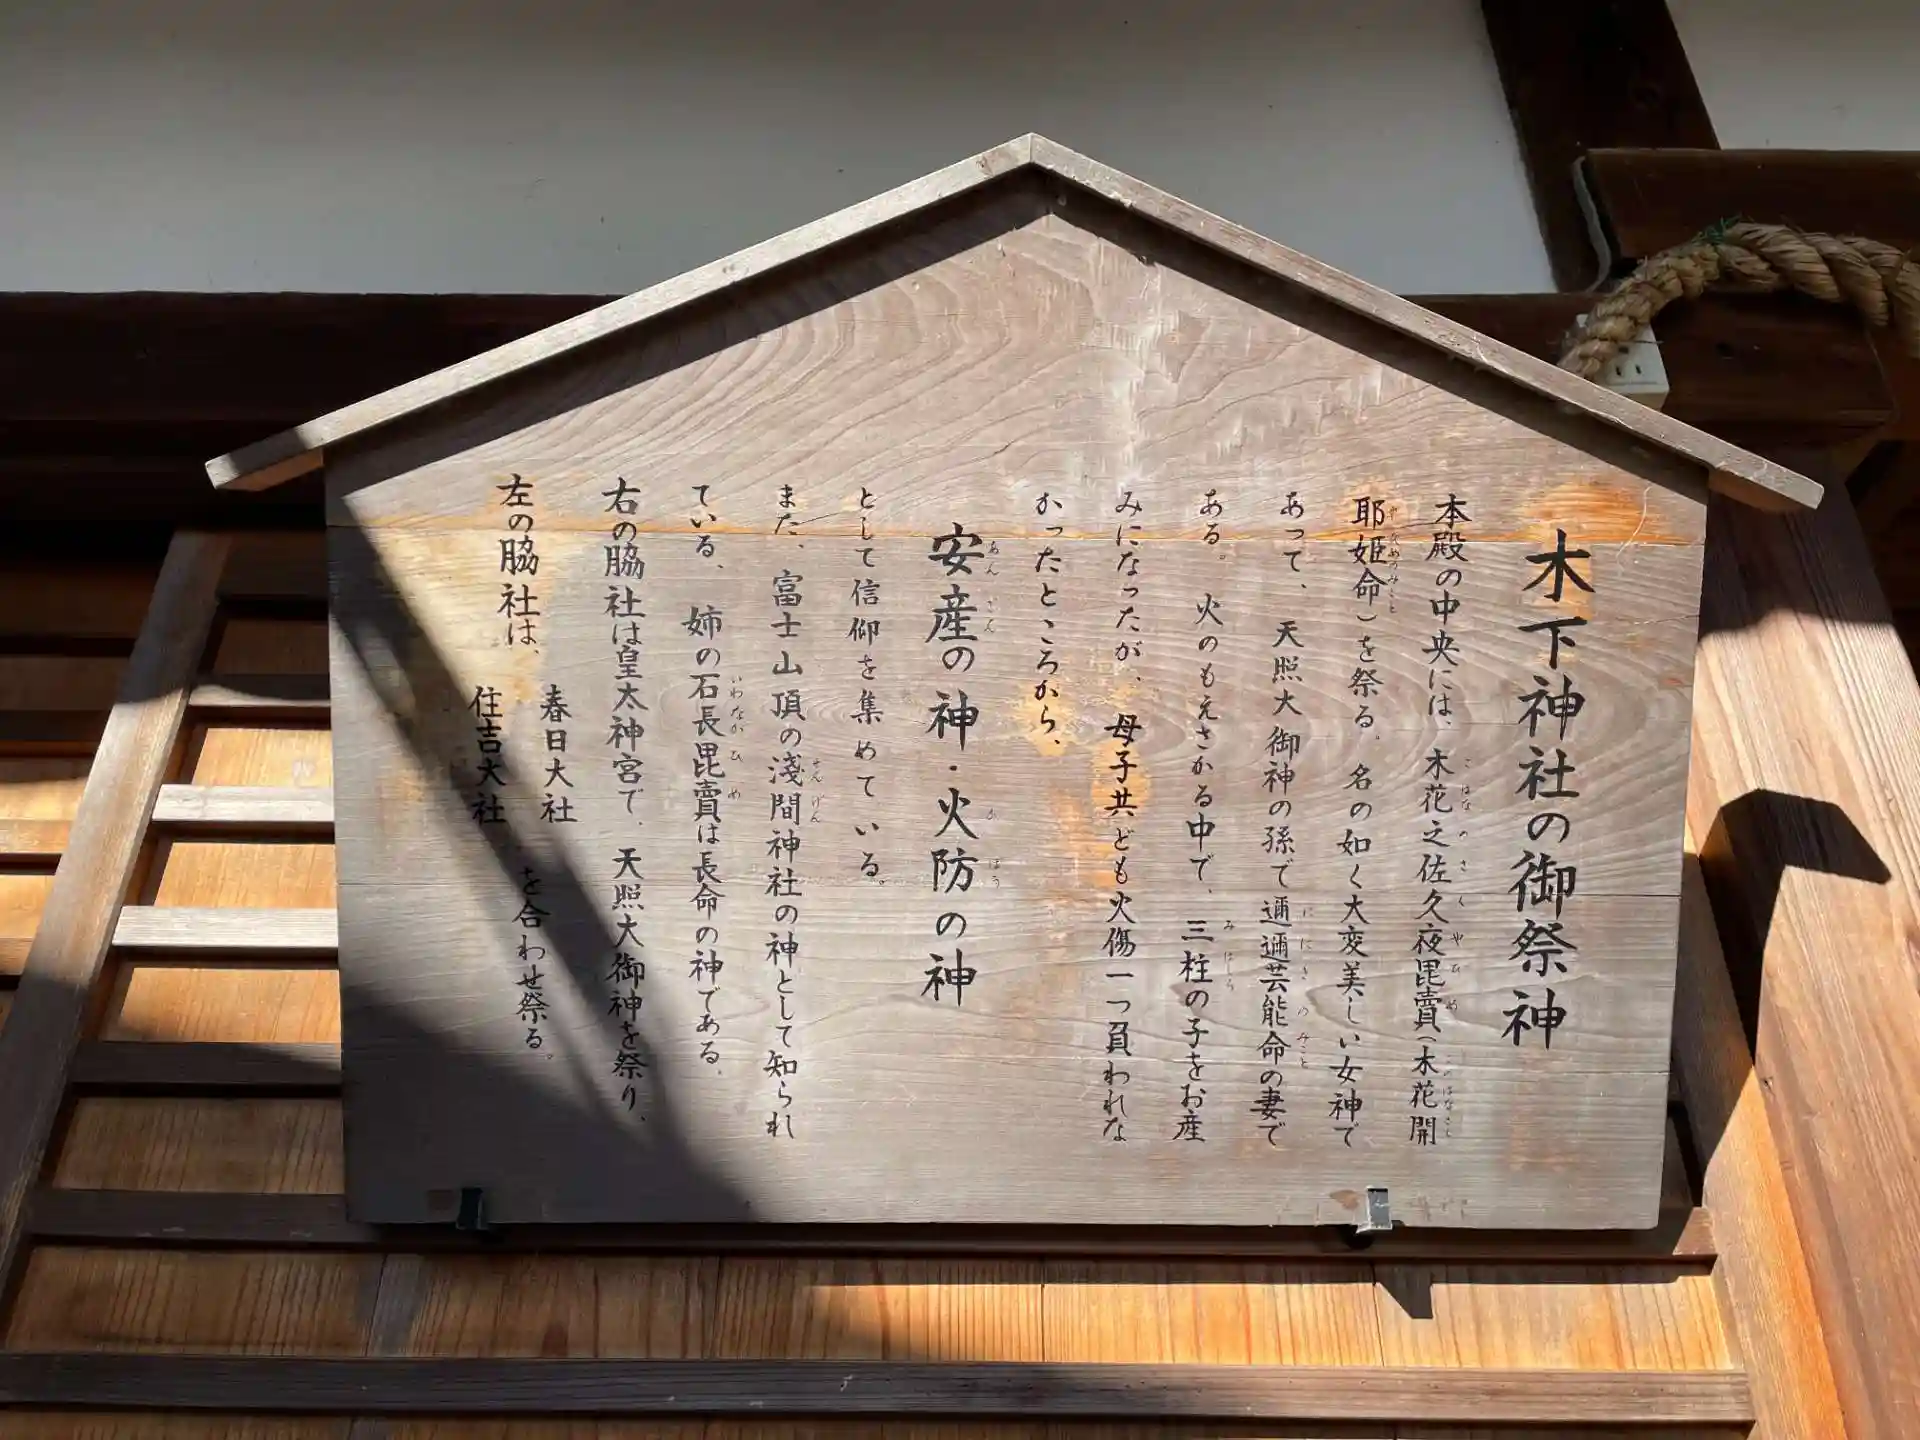 木下神社の御祭神
本殿の中央には、木花之佐久夜毘賣（木花開
耶姫命）を祭る。名の如く大変美しい女神で
あって、天照大御神の孫で邇邇芸能命の妻で
ある。火のもえさかる中で、三柱の子をお産
みになったが、母子共ども火傷一つ負われな
かったところから、
安産の神・火防の神
として信仰を集めている。
また、富士山頂の淺間神社の神として知られ
ている、姉の石長毘賣は長命の神である。
右の脇社は皇太神宮で、天照大御神を祭り、
左の脇社は、春日大社
住吉大社
を合わせ祭る。